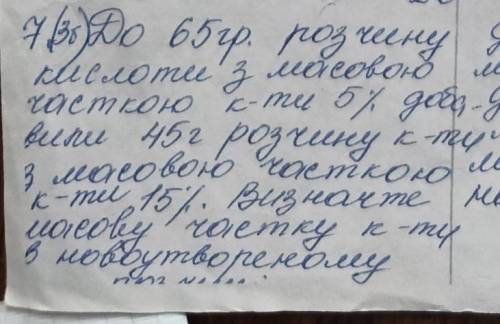 7(3б) До 65гр. розчину
кислоти з масовою
часткою к-ти 5% доба-
вили 45г розчину к-ти
з масовою часткою
к-ти 15%. Визначте
масову частку к-ти
в новоутвореному